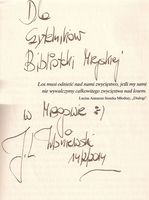 Dla
Czytelników
Biblioteki Miejskiej
Los musi odnieść nad nami zwycięstwo, jeśli my sami
nie wywalczymy całkowitego zwycięstwa nad losem.
Lucius Annaeus Seneka Młodszy, „Dialogi”
w
:)
J. L. Wiśniewski